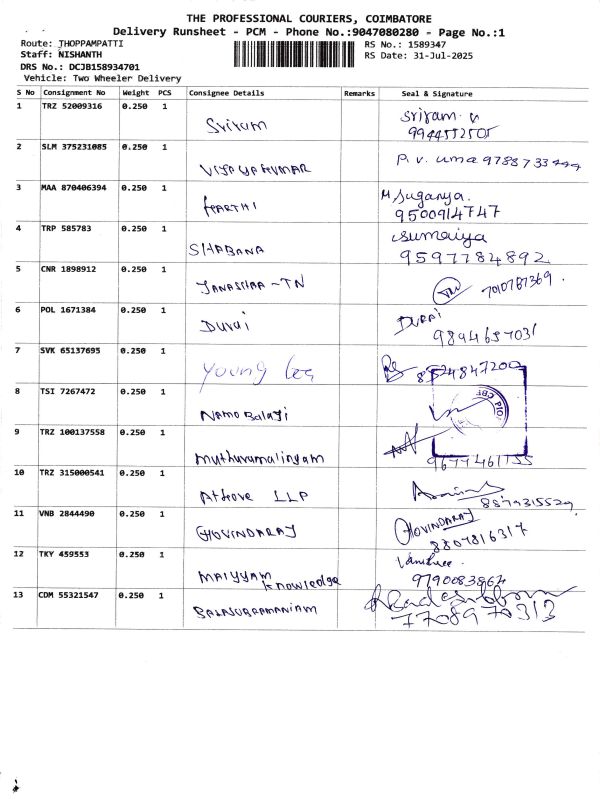 THE PROFESSIONAL COURIERS, COIMBATORE
Delivery Runsheet - PCM - Phone No.:9047080280 - Page No.:1
Route: THOPPAMPATTI
RS No.: 1589347
Staff: NISHANTH
RS Date: 31-Jul-2025
DRS No.: DCJB158934701
Vehicle: Two Wheeler Delivery
S No Consignment No Weight PCS Consignee Details Remarks Seal & Signature
1 TRZ 52009316 0.250 1 Sriram Sriram
9944552505
2 SLM 375231085 0.250 1 VIJAYAKUMAR P. V. uma 9788733444
3 MAA 870406394 0.250 1 AARTHI M. Suganya.
9500914747
4 TRP 585783 0.250 1 SHABANA Sumaiya
9597784892
5 CNR 1898912 0.250 1 JANASHAA-TN 7010787369.
6 POL 1671384 0.250 1 Durai DURAI
9894657031
7 SVK 65137695 0.250 1 Young Lee 8524847200
8 TSI 7267472 0.250 1 Namo Balaji
9 TRZ 100137558 0.250 1 Muthuramalingam 9677461755
10 TRZ 315000541 0.250 1 Athove LLP
11 VNB 2844490 0.250 1 GOVINDARAJ GOVINDARAJ
8807816317
12 TKY 459553 0.250 1 MAIYYAM Knowledge
9790083864
13 CDM 55321547 0.250 1 BALASUBRAMANIAM
7708970313